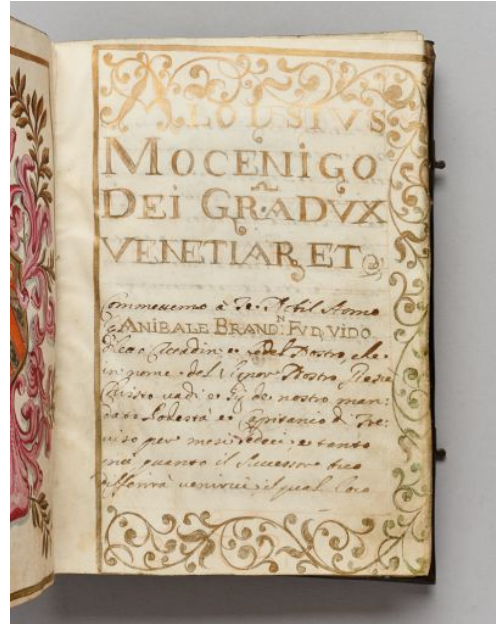 ALOUSIVS
MOCENIGO
DEI GRA DVX
VENETIAR ET
Commettemo à Te Nobil Homo
ANIBALE BRANDN FV D VIDO
Cittadin e Fedel Nostro, che
in nome del Signor Nostro Giesù
Christo vadi e sij de nostro man:
dato Podestà e Capitanio di Tre:
uiso per mesi sedeci, e tanto
più quanto il Successor tuo
differirà venirui, il qual loco